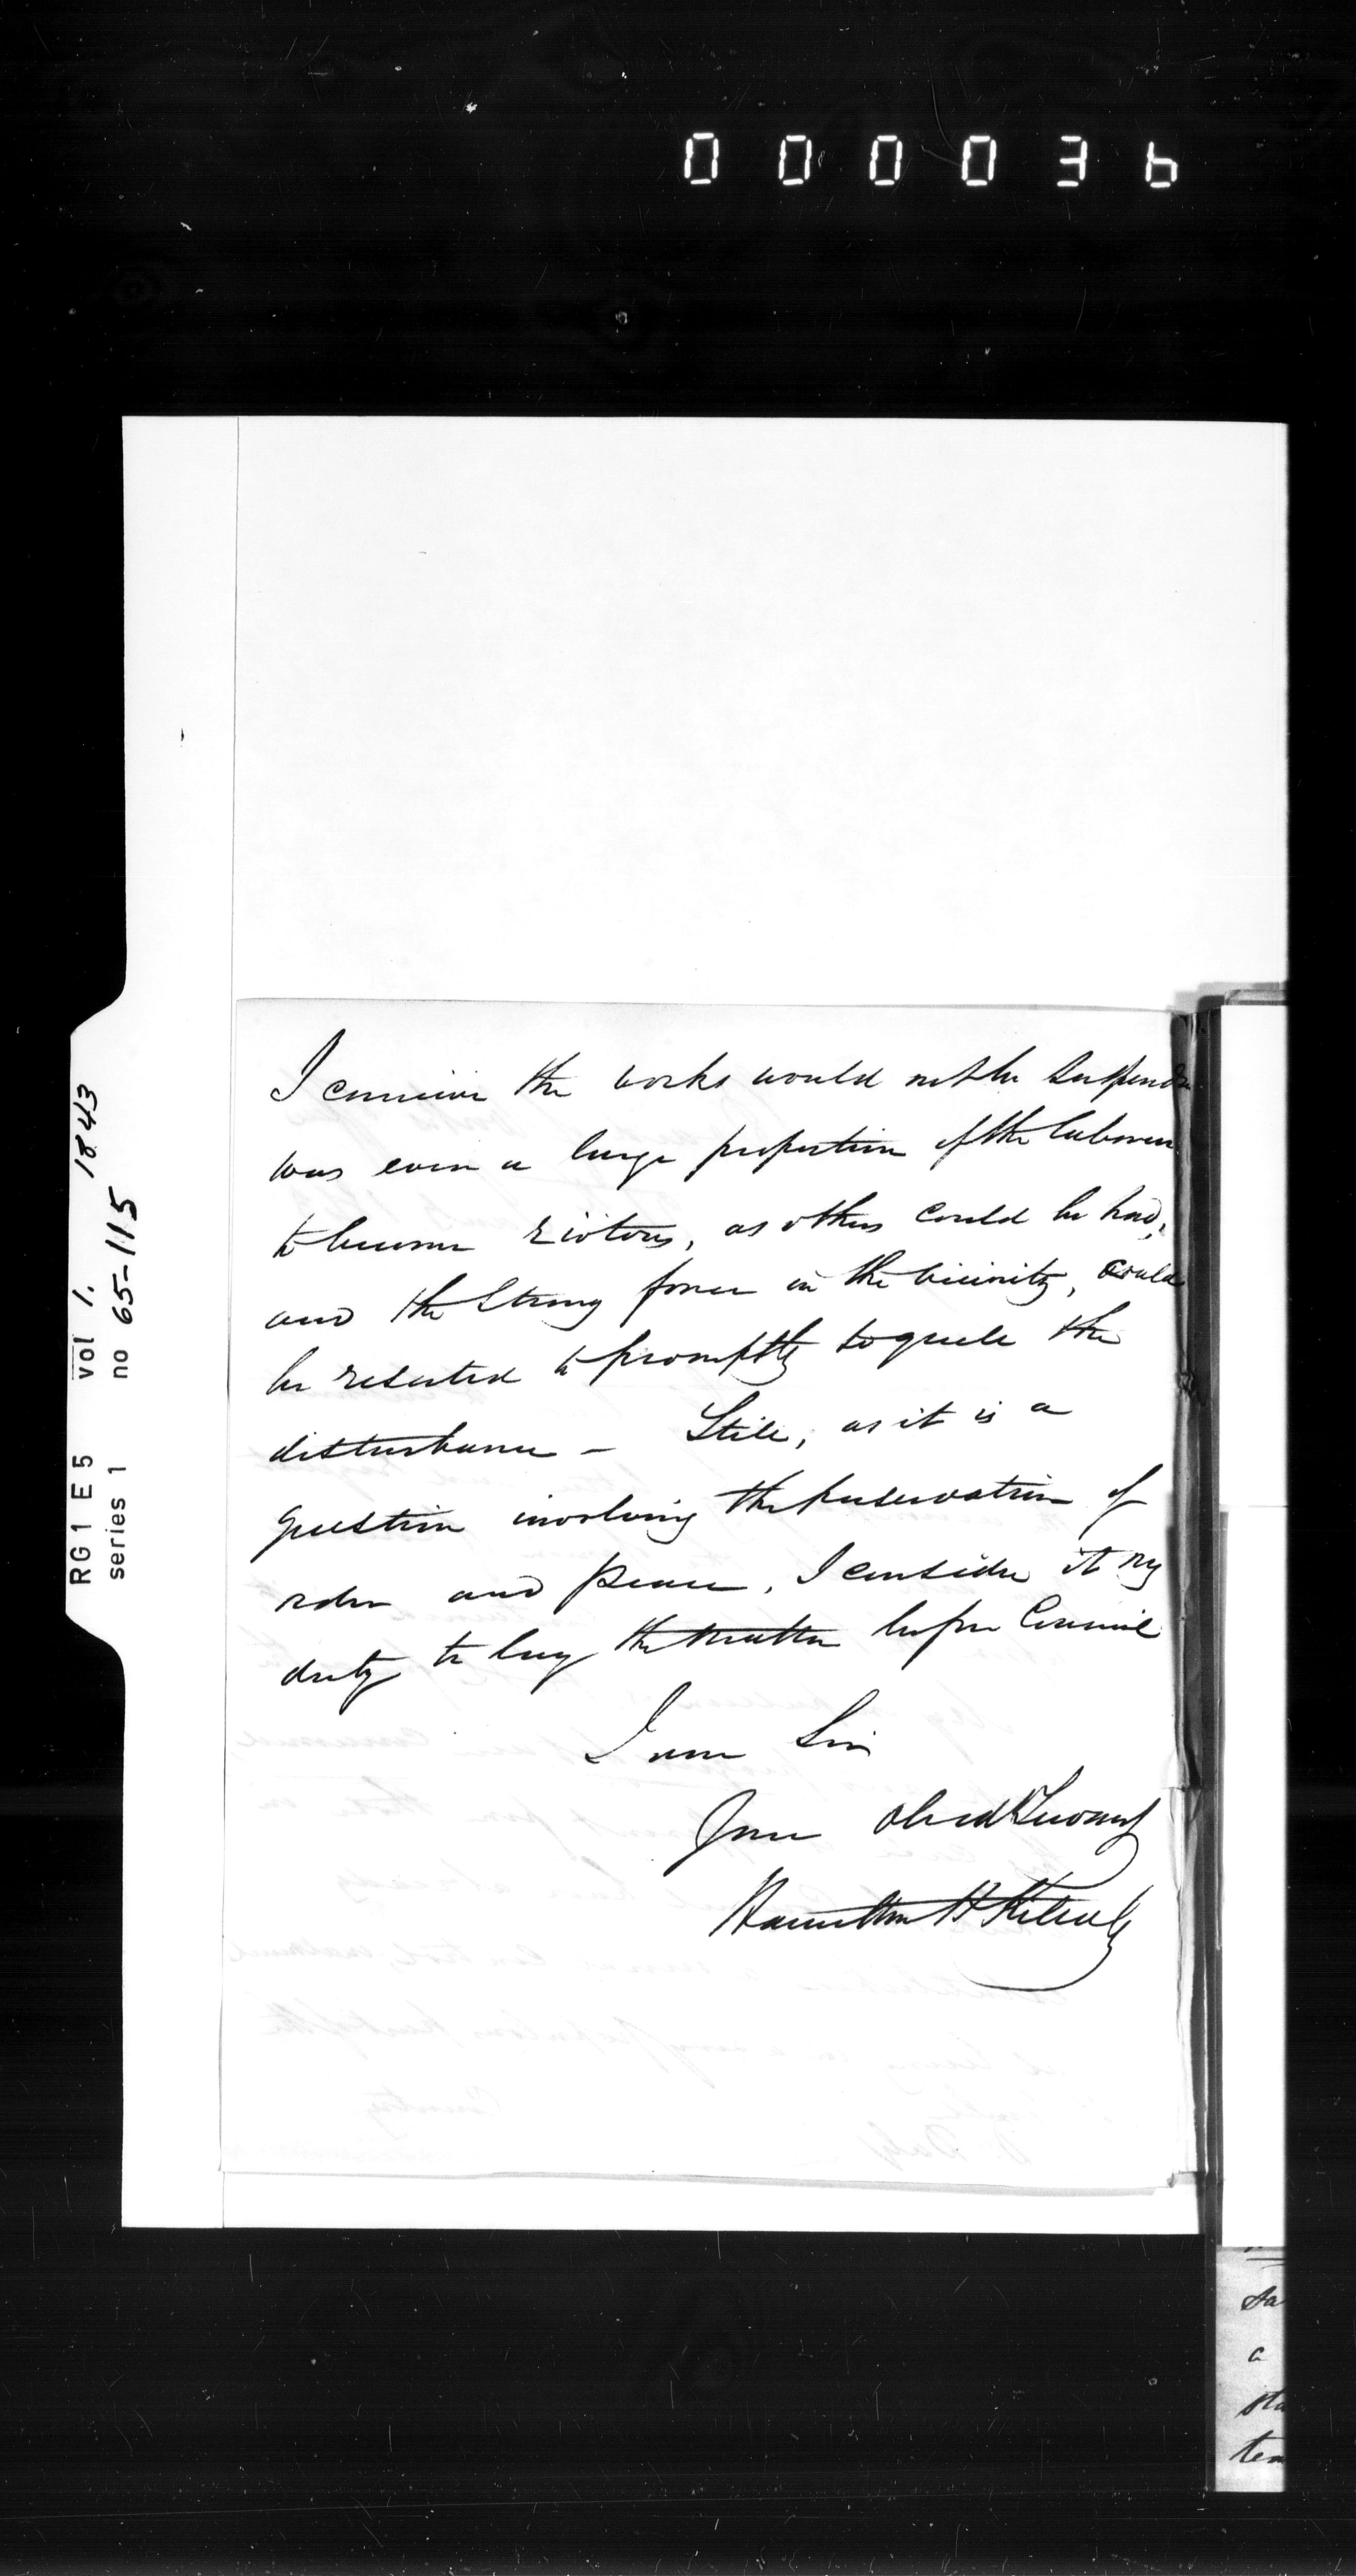 000036
RG1 E5 vol 1. 1843
series 1 no 65-115
I conceive the works would not be suspended
was even a large proportion of the laborers
to become riotous, as others could be had,
and the strong force in the vicinity, could
be resorted to promptly to quell the
disturbance - Still, as it is a
question involving the preservation of
order and peace, I consider it my
duty to lay the matter before Council
I am Sir
Your obed Servant
Hamilton H Killaly
sta
a
sta
tem